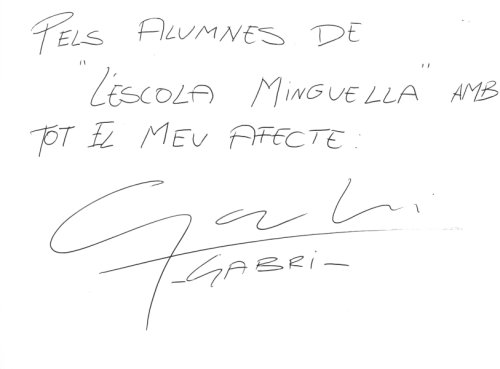 PELS ALUMNES DE
"L'ESCOLA MINGUELLA" AMB
TOT EL MEU AFECTE:
Gabri
-GABRI-